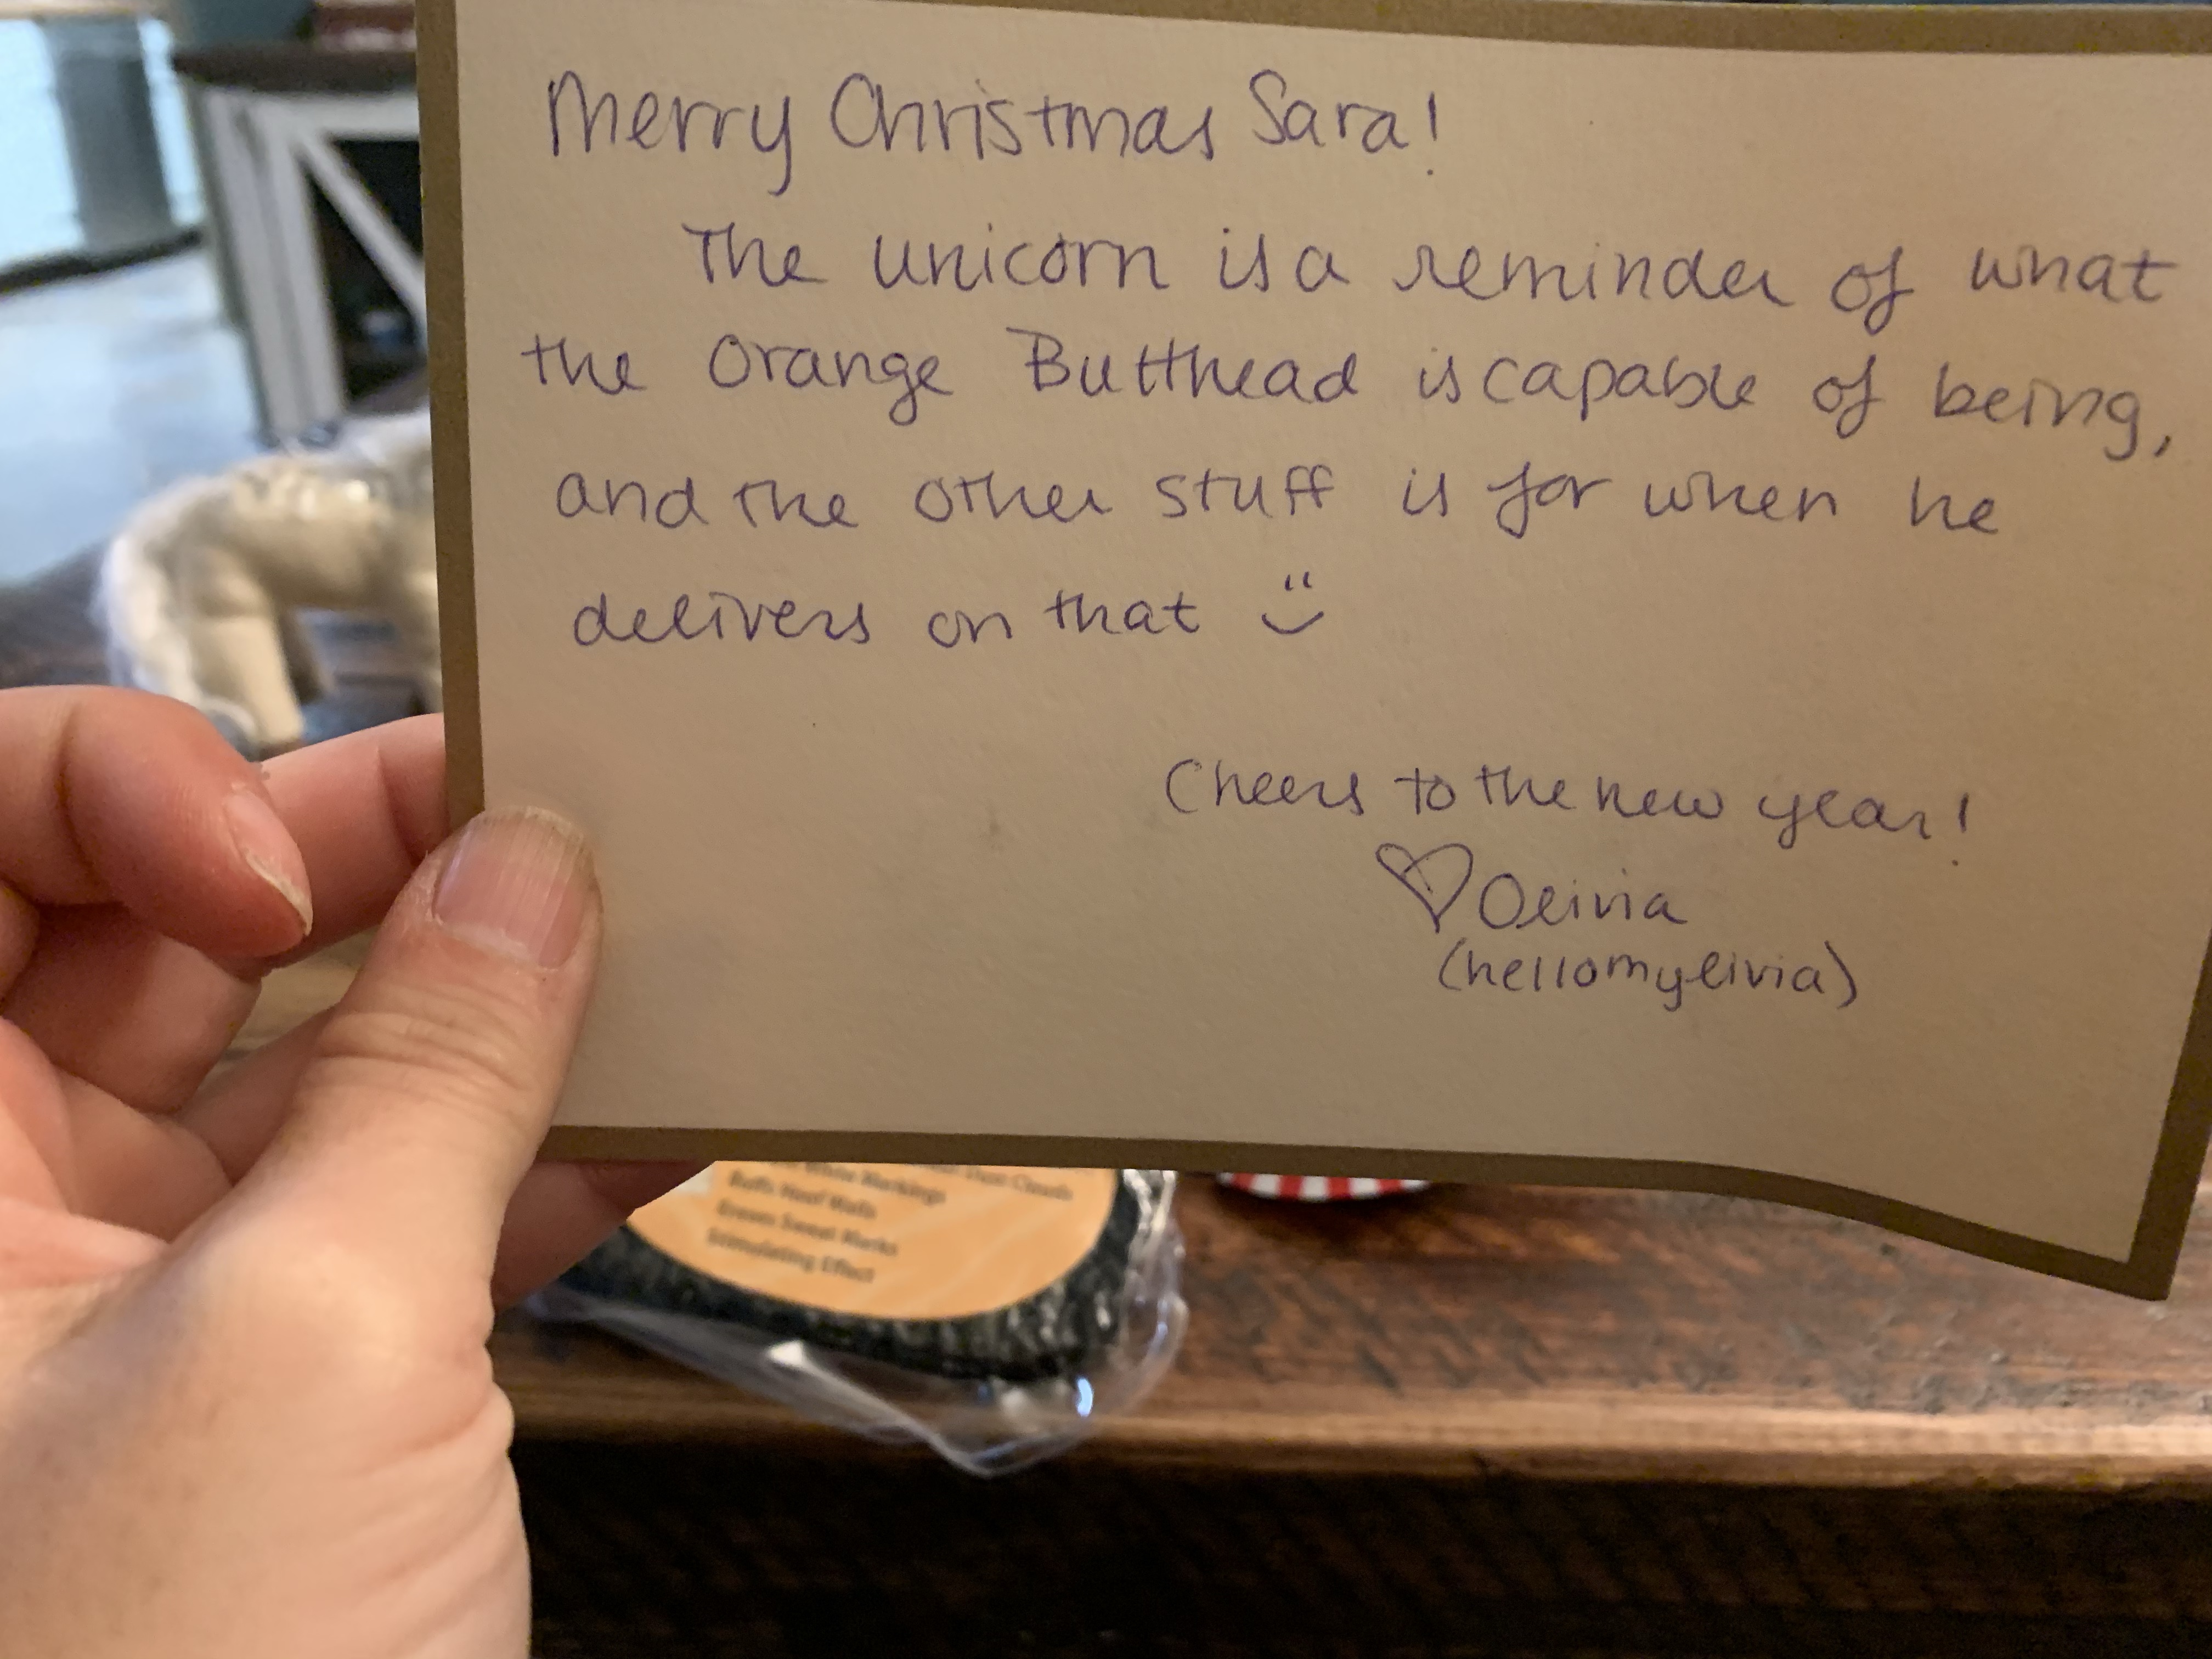 Merry Christmas Sara!
The unicorn is a reminder of what
the Orange Butthead is capable of being,
and the other stuff is for when he
delivers on that
Cheers to the new year!
Olivia
(hellomylivia)
White Markings
Dust Clouds
Buffs Hoof Walls
Erases Sweat Marks
Stimulating Effect